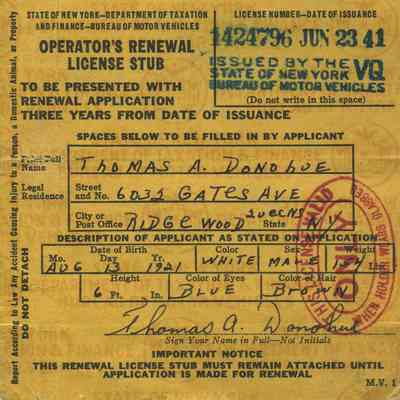 STATE OF NEW YORK—DEPARTMENT OF TAXATION
AND FINANCE—BUREAU OF MOTOR VEHICLES
OPERATOR'S RENEWAL
LICENSE STUB
LICENSE NUMBER—DATE OF ISSUANCE
1424796 JUN 23 41
ISSUED BY THE
STATE OF NEW YORK VQ
BUREAU OF MOTOR VEHICLES
(Do not write in this space)
TO BE PRESENTED WITH
RENEWAL APPLICATION
THREE YEARS FROM DATE OF ISSUANCE
SPACES BELOW TO BE FILLED IN BY APPLICANT
Full
Name THOMAS A. DONOHUE
Legal Residence
Street and No. 6032 GATES AVE
City or Post Office RIDGEWOOD QUEENS State N.Y.
DESCRIPTION OF APPLICANT AS STATED ON APPLICATION
Date of Birth Color Sex Weight
Mo. AUG Day 13 Yr. 1921 WHITE MALE Lbs.
Height Color of Eyes Color of Hair
6 Ft. In. BLUE BROWN
Thomas A. Donohue
Sign Your Name in Full—Not Initials
IMPORTANT NOTICE
THIS RENEWAL LICENSE STUB MUST REMAIN ATTACHED UNTIL
APPLICATION IS MADE FOR RENEWAL
M.V. 1
Report According to Law Any Accident Causing Injury to a Person, a Domestic Animal, or Property
DO NOT DETACH
VALID
ONLY
WHEN HOLDER WEARS